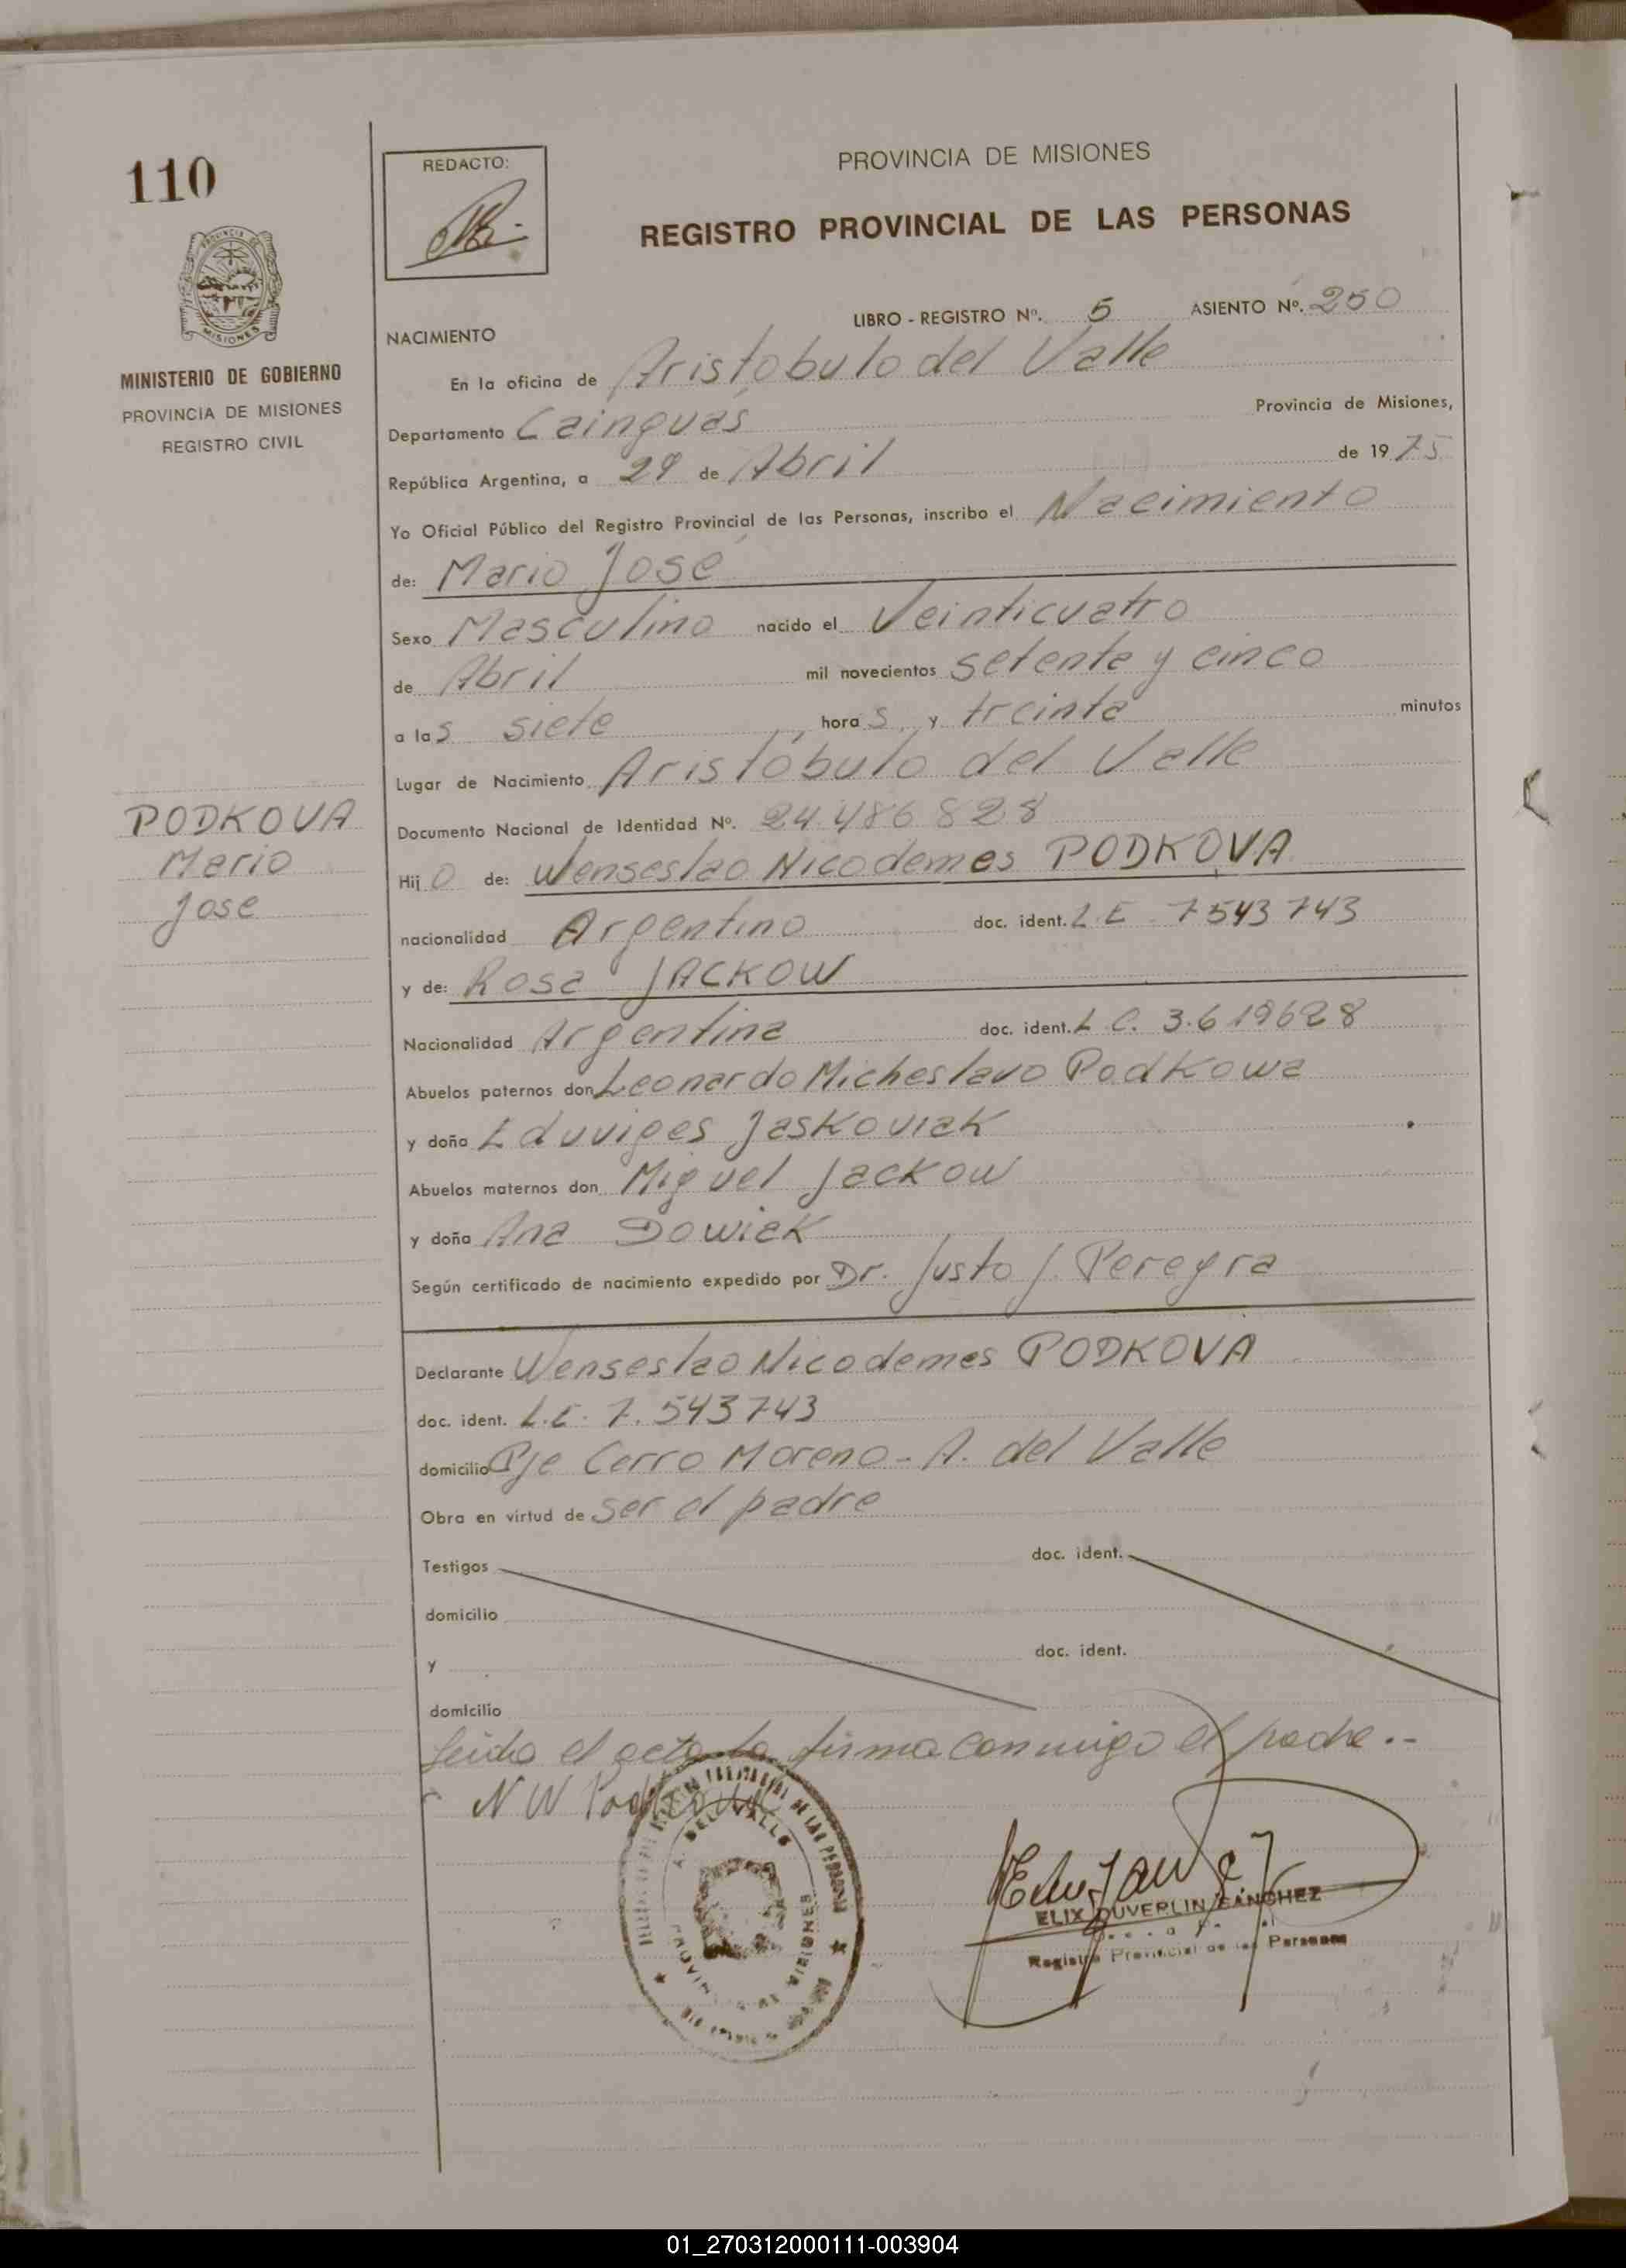 110
REDACTO:
PROVINCIA DE MISIONES
REGISTRO PROVINCIAL DE LAS PERSONAS
PROVINCIA DE
MISIONES
MINISTERIO DE GOBIERNO
PROVINCIA DE MISIONES
REGISTRO CIVIL
LIBRO - REGISTRO Nº. 5 ASIENTO Nº. 250
NACIMIENTO
En la oficina de Aristóbulo del Valle
Departamento Cainguás Provincia de Misiones,
República Argentina, a 29 de Abril de 1975
Yo Oficial Público del Registro Provincial de las Personas, inscribo el Nacimiento
de: Mario José
Sexo Masculino nacido el Veinticuatro
de Abril mil novecientos setenta y cinco
a las siete horas y treinta minutos
Lugar de Nacimiento Aristóbulo del Valle
PODKOVA
Mario
Jose
Documento Nacional de Identidad Nº. 24.486828
Hijo de: Wenseslao Nicodemes PODKOVA
nacionalidad Argentino doc. ident. L E 7543743
y de: Rosa JACKOW
Nacionalidad Argentina doc. ident. L C. 3.619628
Abuelos paternos don Leonardo Micheslavo Podkowa
y doña Eduviges Jaskoviak
Abuelos maternos don Miguel Jackow
y doña Ana Dowiak
Según certificado de nacimiento expedido por Dr. Justo J. Pereyra
Declarante Wenseslao Nicodemes PODKOVA
doc. ident. L.E. 7.543743
domicilio Pje Cerro Moreno - A. del Valle
Obra en virtud de ser el padre
Testigos doc. ident.
domicilio
y doc. ident.
domicilio
Leída el acta la firma conmigo el padre.--
N W Podkova
DE LAS PERSONAS
DEL VALLE
MISIONES
ELIX DUVERLIN SANCHEZ
Registro Provincial de las Personas
01_270312000111-003904